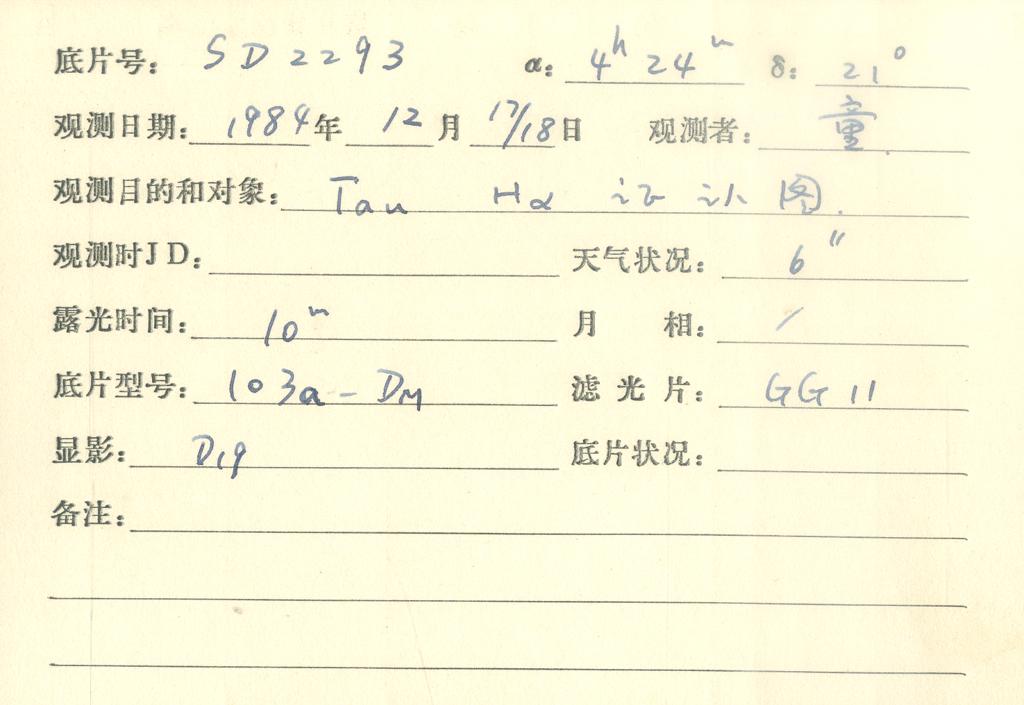 底片号: SD2293 α: 4ʰ 24ᵐ δ: 21°
观测日期: 1984年 12月 17/18日 观测者: 童
观测目的和对象: Tau Hα 证认图.
观测时JD: 天气状况: 6"
露光时间: 10ᵐ 月 相: /
底片型号: 103a-DM 滤光片: GG 11
显影: D19 底片状况:
备注: